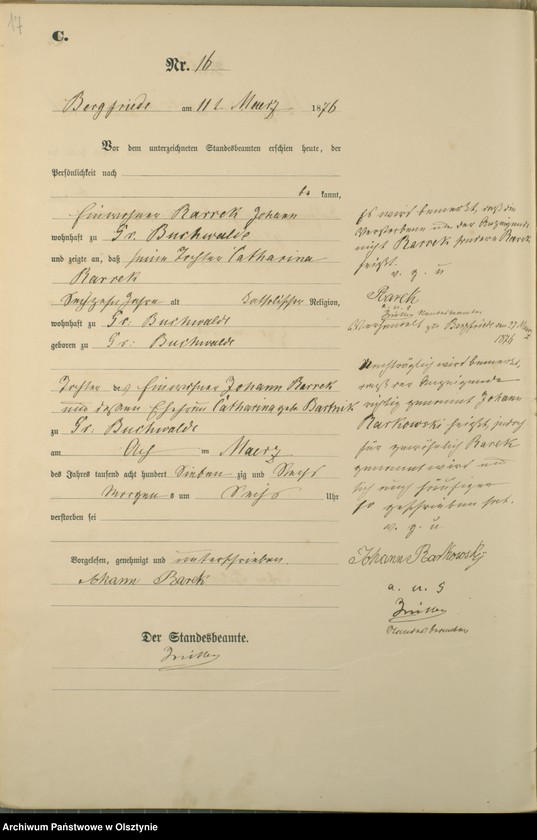 17
C.
Nr. 16
Bergfriede am 11 t Maerz 1876
Vor dem unterzeichneten Standesbeamten erschien heute, der
Persönlichkeit nach
be kannt,
Einwohner Rarrek Johann
wohnhaft zu Gr. Buchwalde
und zeigte an, daß seine Tochter Catharina
Rarrek
Sechzehn Jahre alt katholischer Religion,
wohnhaft zu Gr. Buchwalde
geboren zu Gr. Buchwalde
Tochter des Einwohner Johann Rarrek
und dessen Ehefrau Catharina geb. Bartnik
zu Gr. Buchwalde
am Acht im Maerz
des Jahres tausend acht hundert Sieben zig und Sechs
Morgens um Sechs Uhr
verstorben sei
Vorgelesen, genehmigt und unterschrieben.
Johann Rarek
Der Standesbeamte.
Es wird bemerkt, daß die
Verstorbene und der Anzeigende
nicht Rarrek sondern Rarek
heißt.
v. g. u
Rarek
a. u. s.
Standesbeamter
zu Bergfriede am 27 Maerz
1876
Nachträglich wird bemerkt,
daß der Anzeigende
richtig genannt Johann
Rarkowski heißt, jedoch
für gewöhnlich Rarek
genannt wird und
sich auch häufiger
so geschrieben hat.
v. g. u
Johann Rarkowski
a. u. s
Standesbeamter
Archiwum Państwowe w Olsztynie